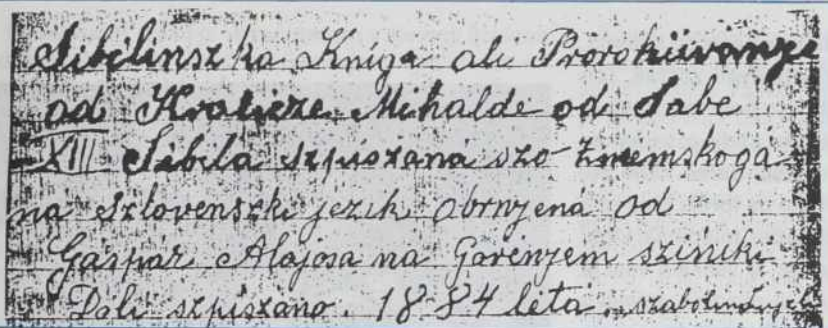 Sibilinszka Kniga ali Proroküvanye
od Kralicze Mihalde od Sabe
XIII Sibila szpiszana szo
na szlovenszki jezik obrnjena od
Gáspár Alajosa na Gorenyem sziniki
Dali szpiszano. 1884 leta